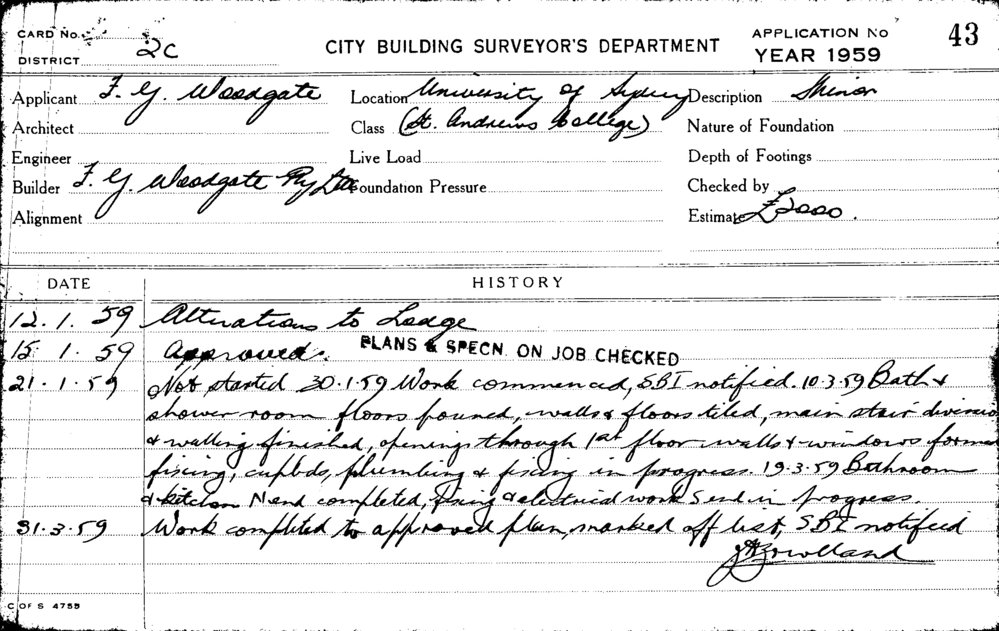 CARD No. CITY BUILDING SURVEYOR'S DEPARTMENT APPLICATION No 43
DISTRICT 2C YEAR 1959
Applicant F. G. Woodgate Location University of Sydney Description Minor
Architect Class (St. Andrews College) Nature of Foundation
Engineer Live Load Depth of Footings
Builder F. G. Woodgate Pty Ltd Foundation Pressure Checked by
Alignment Estimate £2000.
DATE HISTORY
12.1.59 Alterations to Lodge
15.1.59 Approved. PLANS & SPECN. ON JOB CHECKED
21.1.59 Not started 30.1.59 Work commenced, SBI notified. 10.3.59 Bath &
shower room floors poured, walls & floors tiled, main stair division
& walling finished, openings through 1st floor walls & windows formed
fixing, cupbds, plumbing & fixing in progress. 19.3.59 Bathroom
& kitchen N end completed, fixing & electrical work S end in progress.
31.3.59 Work completed to approved plan, marked off list, SBI notified
C OF S 4759